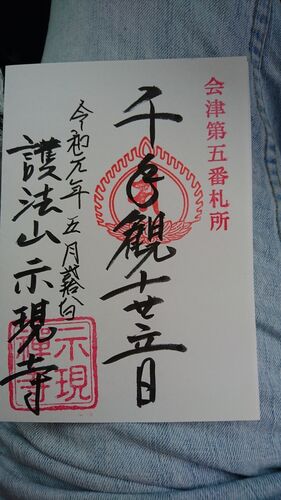 会津第五番札所
千手觀世音
令和元年五月
護法山示現寺
示現
禪寺